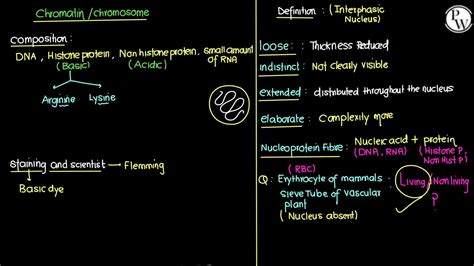 Chromatin/chromosome
composition:
DNA, Histone protein, Non histone protein, Small amount of RNA
(Basic) (Acidic)
Arginine Lysine
Staining and scientist → Flemming
Basic dye
Definition : (Interphasic Nucleus)
loose : Thickness Reduced
indistinct : Not clearly visible
extended : distributed throughout the nucleus
elaborate : Complexity more
Nucleoprotein Fibre : Nucleic acid + protein
(DNA, RNA) (Histone P, Non Hist P)
(RBC)
Q : Erythrocyte of mammals : Living / Non living
Sieve Tube of vascular plant
(Nucleus absent)
P
PW